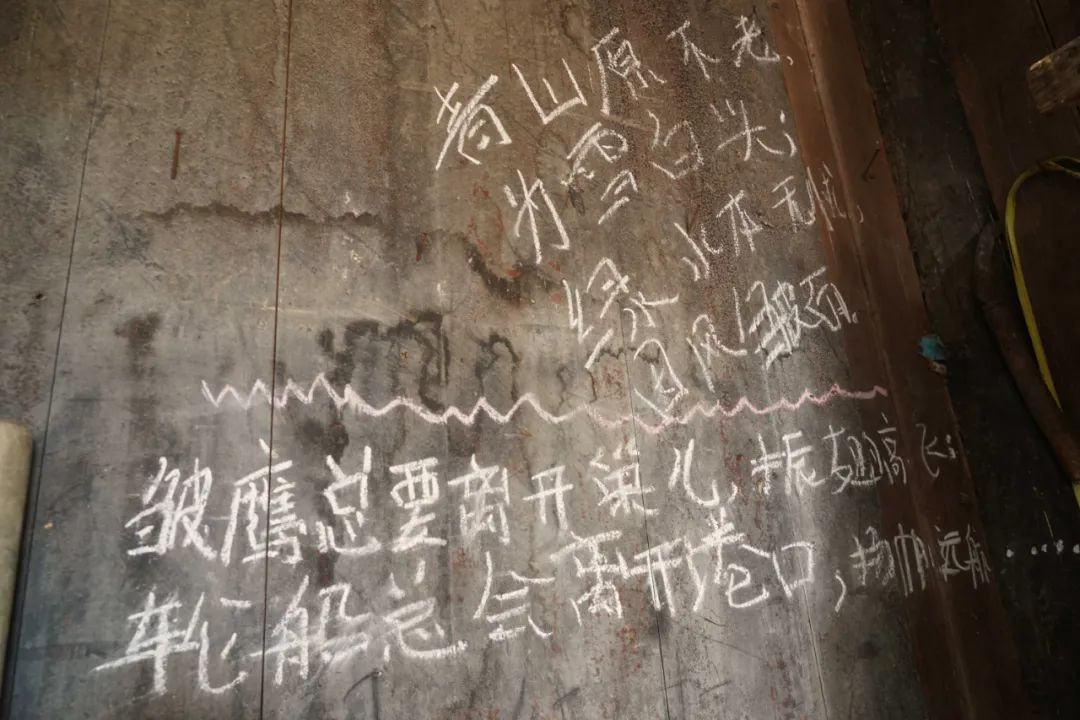 青山原不老,
为雪白头;
绿水本无忧,
因风皱面.
皱鹰总要离开巢儿,振翅高飞;
轮船总会离开巷口,扬帆远航......